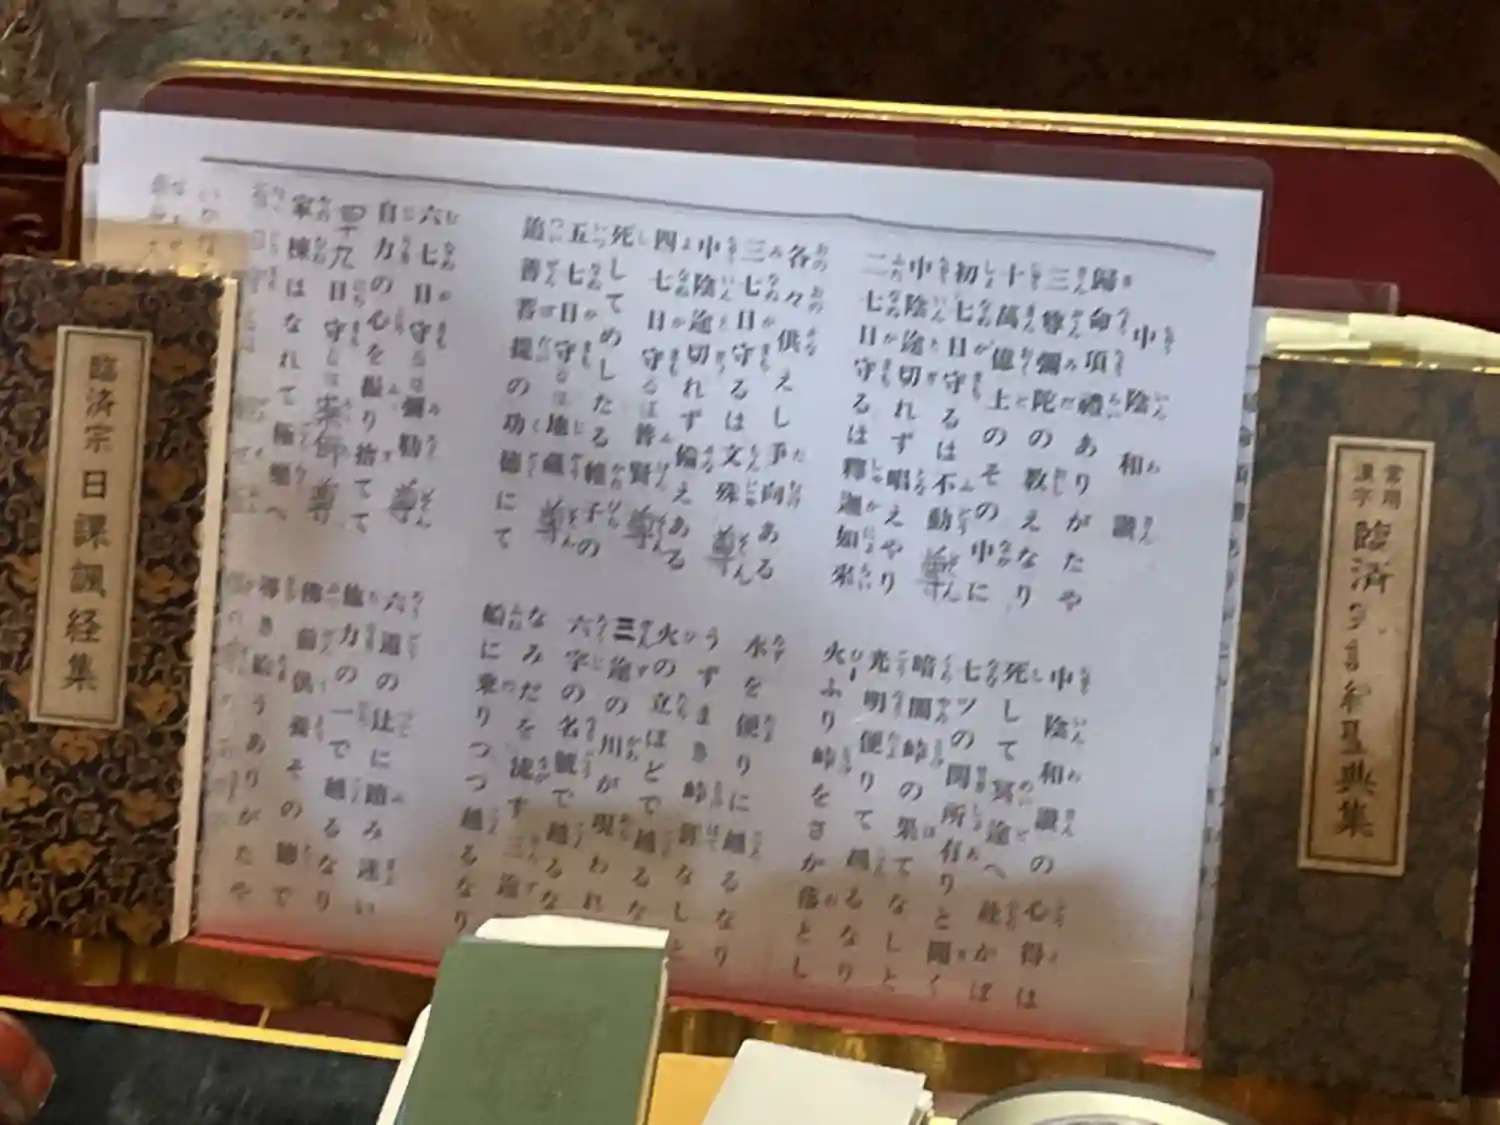 中陰和讃
歸命頂禮ありがたや
三尊彌陀の教えなり
十萬億土のその中に
初七日守るは不動尊
中陰途切れず唱えやり
二七日守るは釋迦如来
各々供えし手向ある
三七日守るは文殊尊
中陰途切れず備えある
四七日守るは普賢尊
死してめしたる帷子の
五七日守るは地蔵尊
追善菩提の功徳にて
六七日守るは彌勒尊
自力の心を振り捨てて
四十九日守るは薬師尊
家棟はなれて極樂へ
中陰和讃の心得は
死して冥途へ赴かば
七ツの関所有りと聞く
暗闇峠の果てなしと
光明便りて越るなり
火ふり峠をさか落とし
水を便りに越るなり
うずまき峠なしと
火の立ほどで越るな
三途の川が現われ
六字の名號で越るな
なみだを流す三途
船に乗りつつ越るなり
六道の辻に踏み迷い
他力の一で越るなり
佛前供養その徳で
導き給うありがたや
臨済宗日課諷経集
常用
漢字
臨済宗聖典集